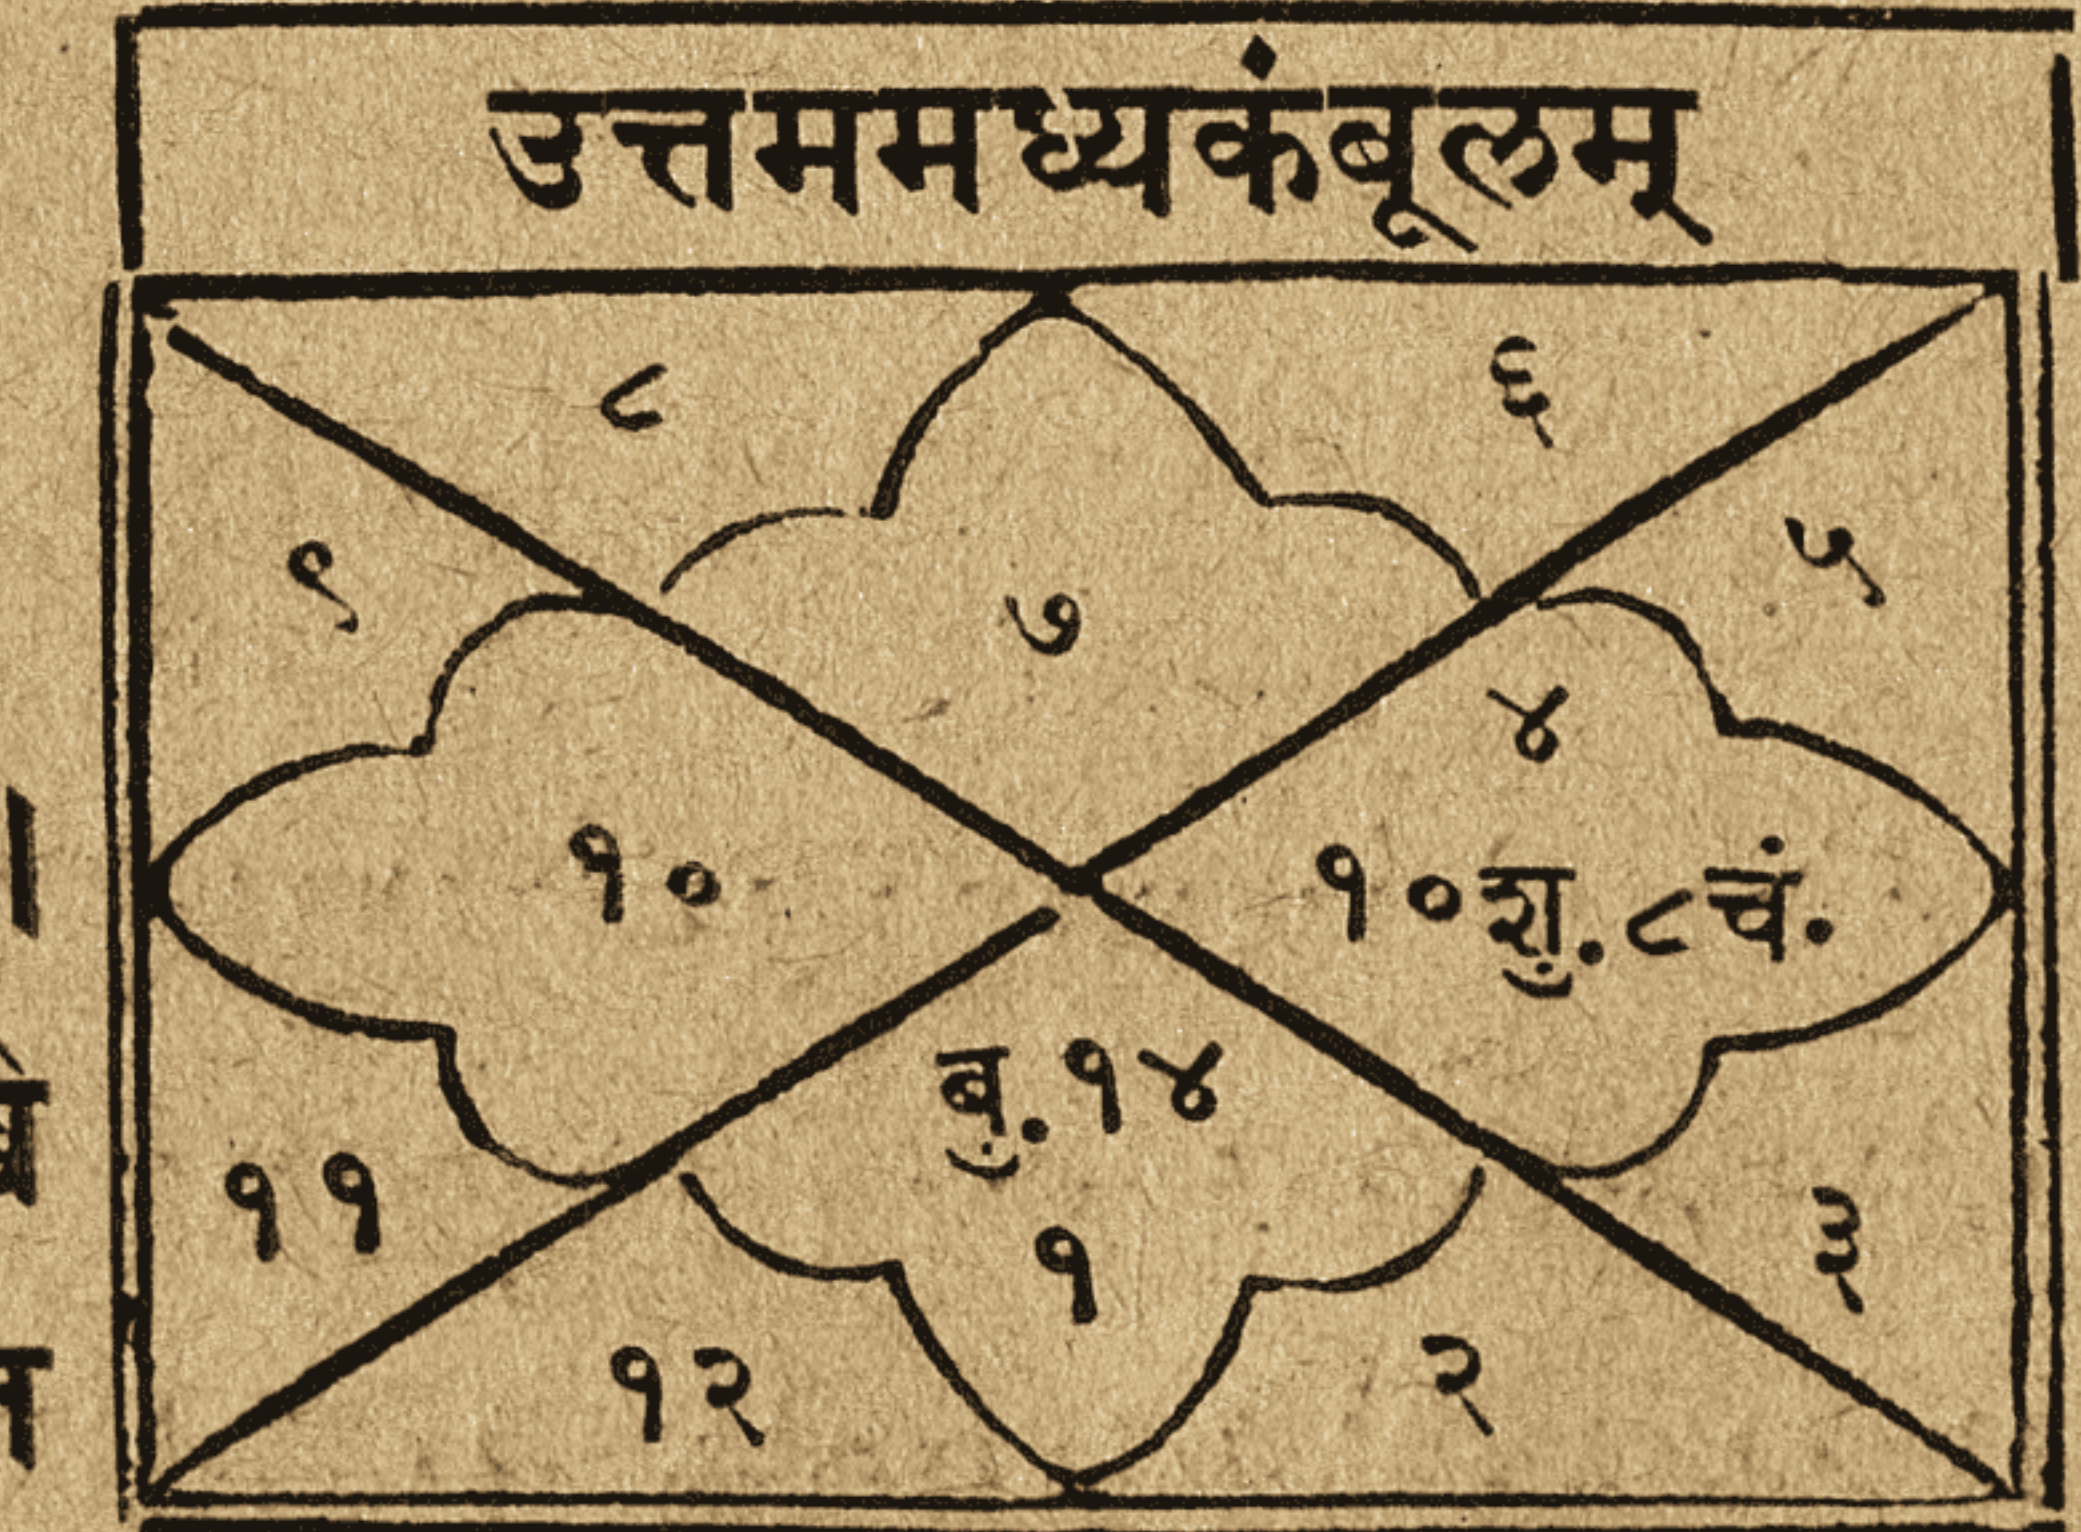 उत्तममध्यकंबूलम्
८
६
९
५
७
४
१०
१०शु.८चं.
बु.१४
११
१
३
१२
२